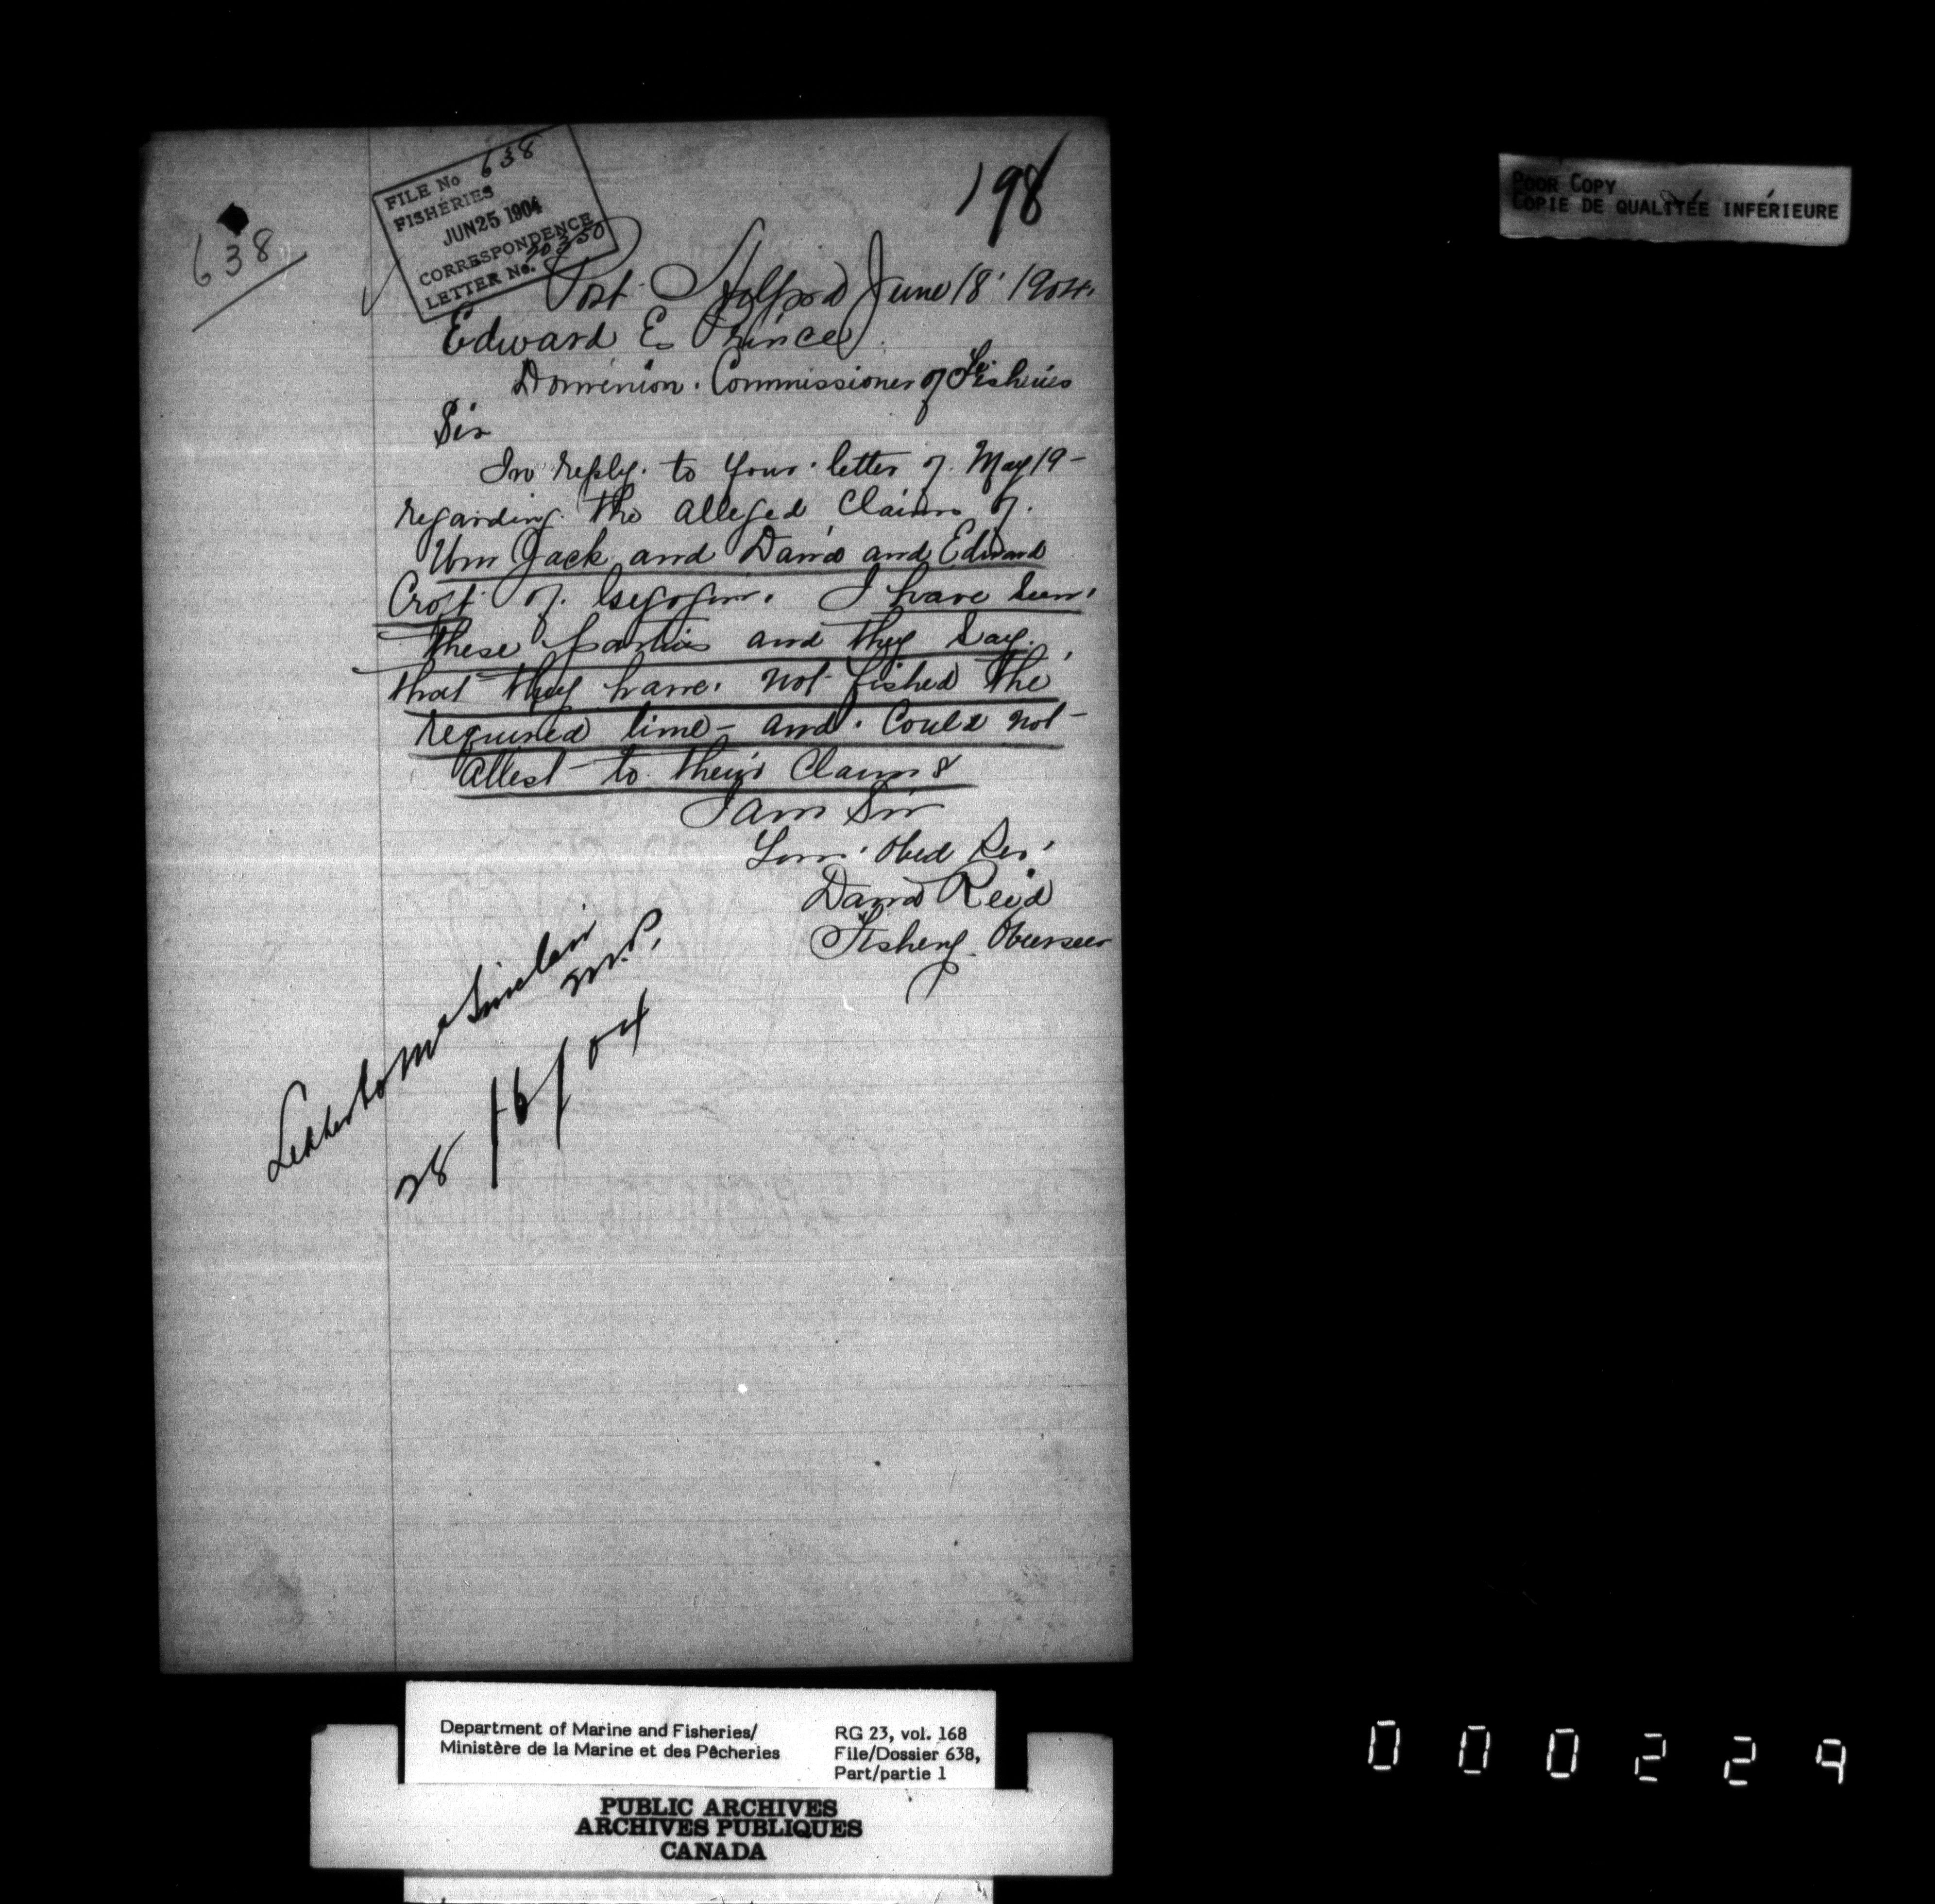 198
FILE No 638
FISHERIES
JUN 25 1904
CORRESPONDENCE
LETTER No. 20350
638
Port Hilford June 18 1904
Edward E. Prince
Dominion Commissioner of Fisheries
Sir
In reply to your letter of May 19
regarding the alleged Claims of
Wm Jack and David and Edward
Croft of I have seen
these parties and they say
that they have not fished the
required time and Could not
attest to their Claims
I am Sir
Your Obed Ser
David Reid
Fishery Overseer
Letter to Mr Sinclair
M.P.
28/6/04
POOR COPY
COPIE DE QUALITÉE INFÉRIEURE
Department of Marine and Fisheries/
Ministère de la Marine et des Pêcheries
RG 23, vol. 168
File/Dossier 638,
Part/partie 1
PUBLIC ARCHIVES
ARCHIVES PUBLIQUES
CANADA
000229